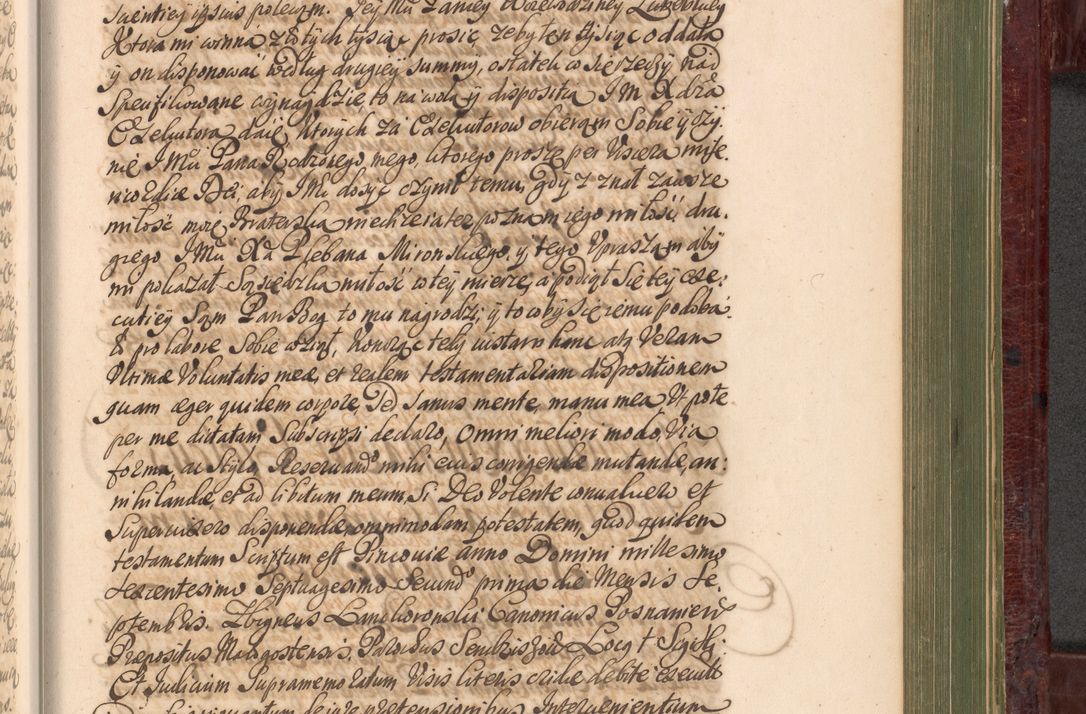 Scientiey iysuis polewam. Jey Mu Paniey Woiewodziney
Ktora mi winna złotych tysiąc prosię, zeby ten tysiąc oddała
y on disponować według drugiey summy, ostatek co się rzeczy nad
Specifikowane wynaydzie, to na wolą y disposityą J M Xdza
Exekutora daię, ktorych za Exekutorow obieram Sobie y czy
nię J Mci Pana rodzonego mego, ktorego proszę per Viscera mise.
ricordiae Dei, aby J Mci dosyć czynił temu, gdy z znał zawsze
miłość moię Braterską niechze ia tez poznam iego miłość, dru.
giego J Mci Xa Plebana Mironskiego, y tego Upraszam aby
mi pokazał Sąsiedzką miłość w tey mierze, a podiął się tey exe:
cutiey Sam Pan Bog to mu nagrodzi, y to coby się iemu podoba:
ło pro labore Sobie wziął, kończąc tedy istam hanc atq Veram
Ultimae Voluntatis meae, et realem testamentariam dispositionem
quam aeger quidem corpore, Sed sanus mente, manu mea Ut pote
per me dictatam Subscripsi declaro, Omni meliori modo, Via
forma, ac Stylo, Reservando mihi eius corrigendae mutandae, an:
nihilandae, et ad libitum meum, Si Deo Volente convaluero et
Supervixero disponendae, omnimodam potestatem, quod quidem
testamentum Scriptum est Pincoviae anno Domini millesimo
sexcentesimo Septuagesimo Secundo prima die Mensis Se.
ptembris. Zbigneus Lanckoronski Canonicus Posnaniensis
Praepositus Malgostensis, Parochus Locq + Sigilli
Et Judicium Supramemoratum Visis literis cridae debite execut
quantum de iure praetensionibus Intervenientium